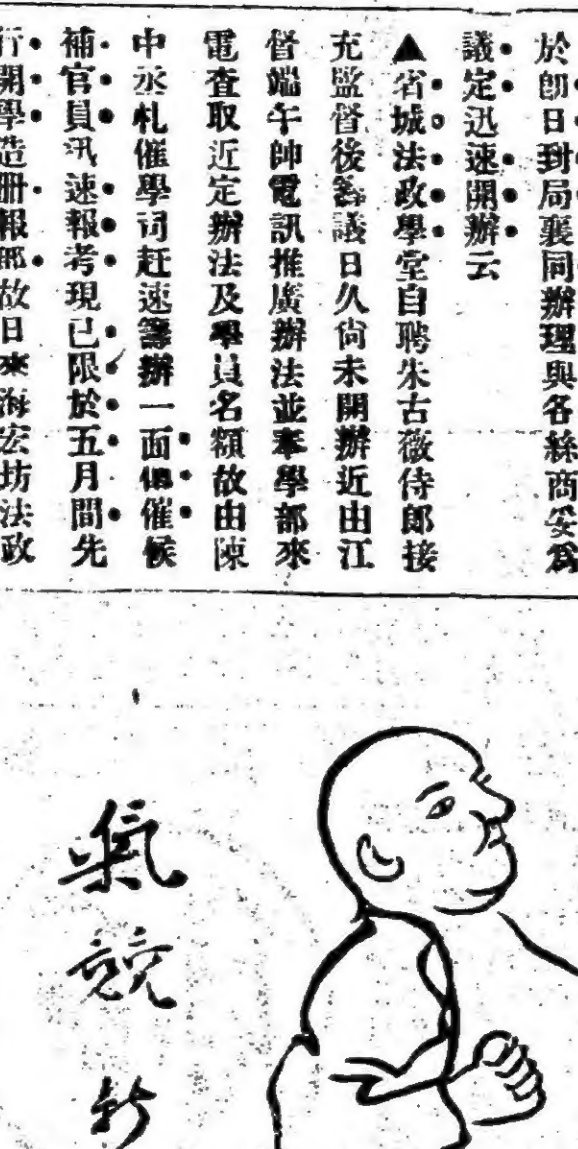 於卽日對局襄同辦理與各絲商妥爲
議定迅速開辦云
▲省城法政學堂自聘朱古薇侍郎接
充監督後籌議日久尙未開辦近由江
督端午帥電訊推廣辦法並奉學部來
電查取近定辦法及學員名額故由陳
中丞札催學司赶速籌辦一面催候
補官員汛速報考現已限於五月間先
行開學造冊報部故日來海宏坊法政
氣競新